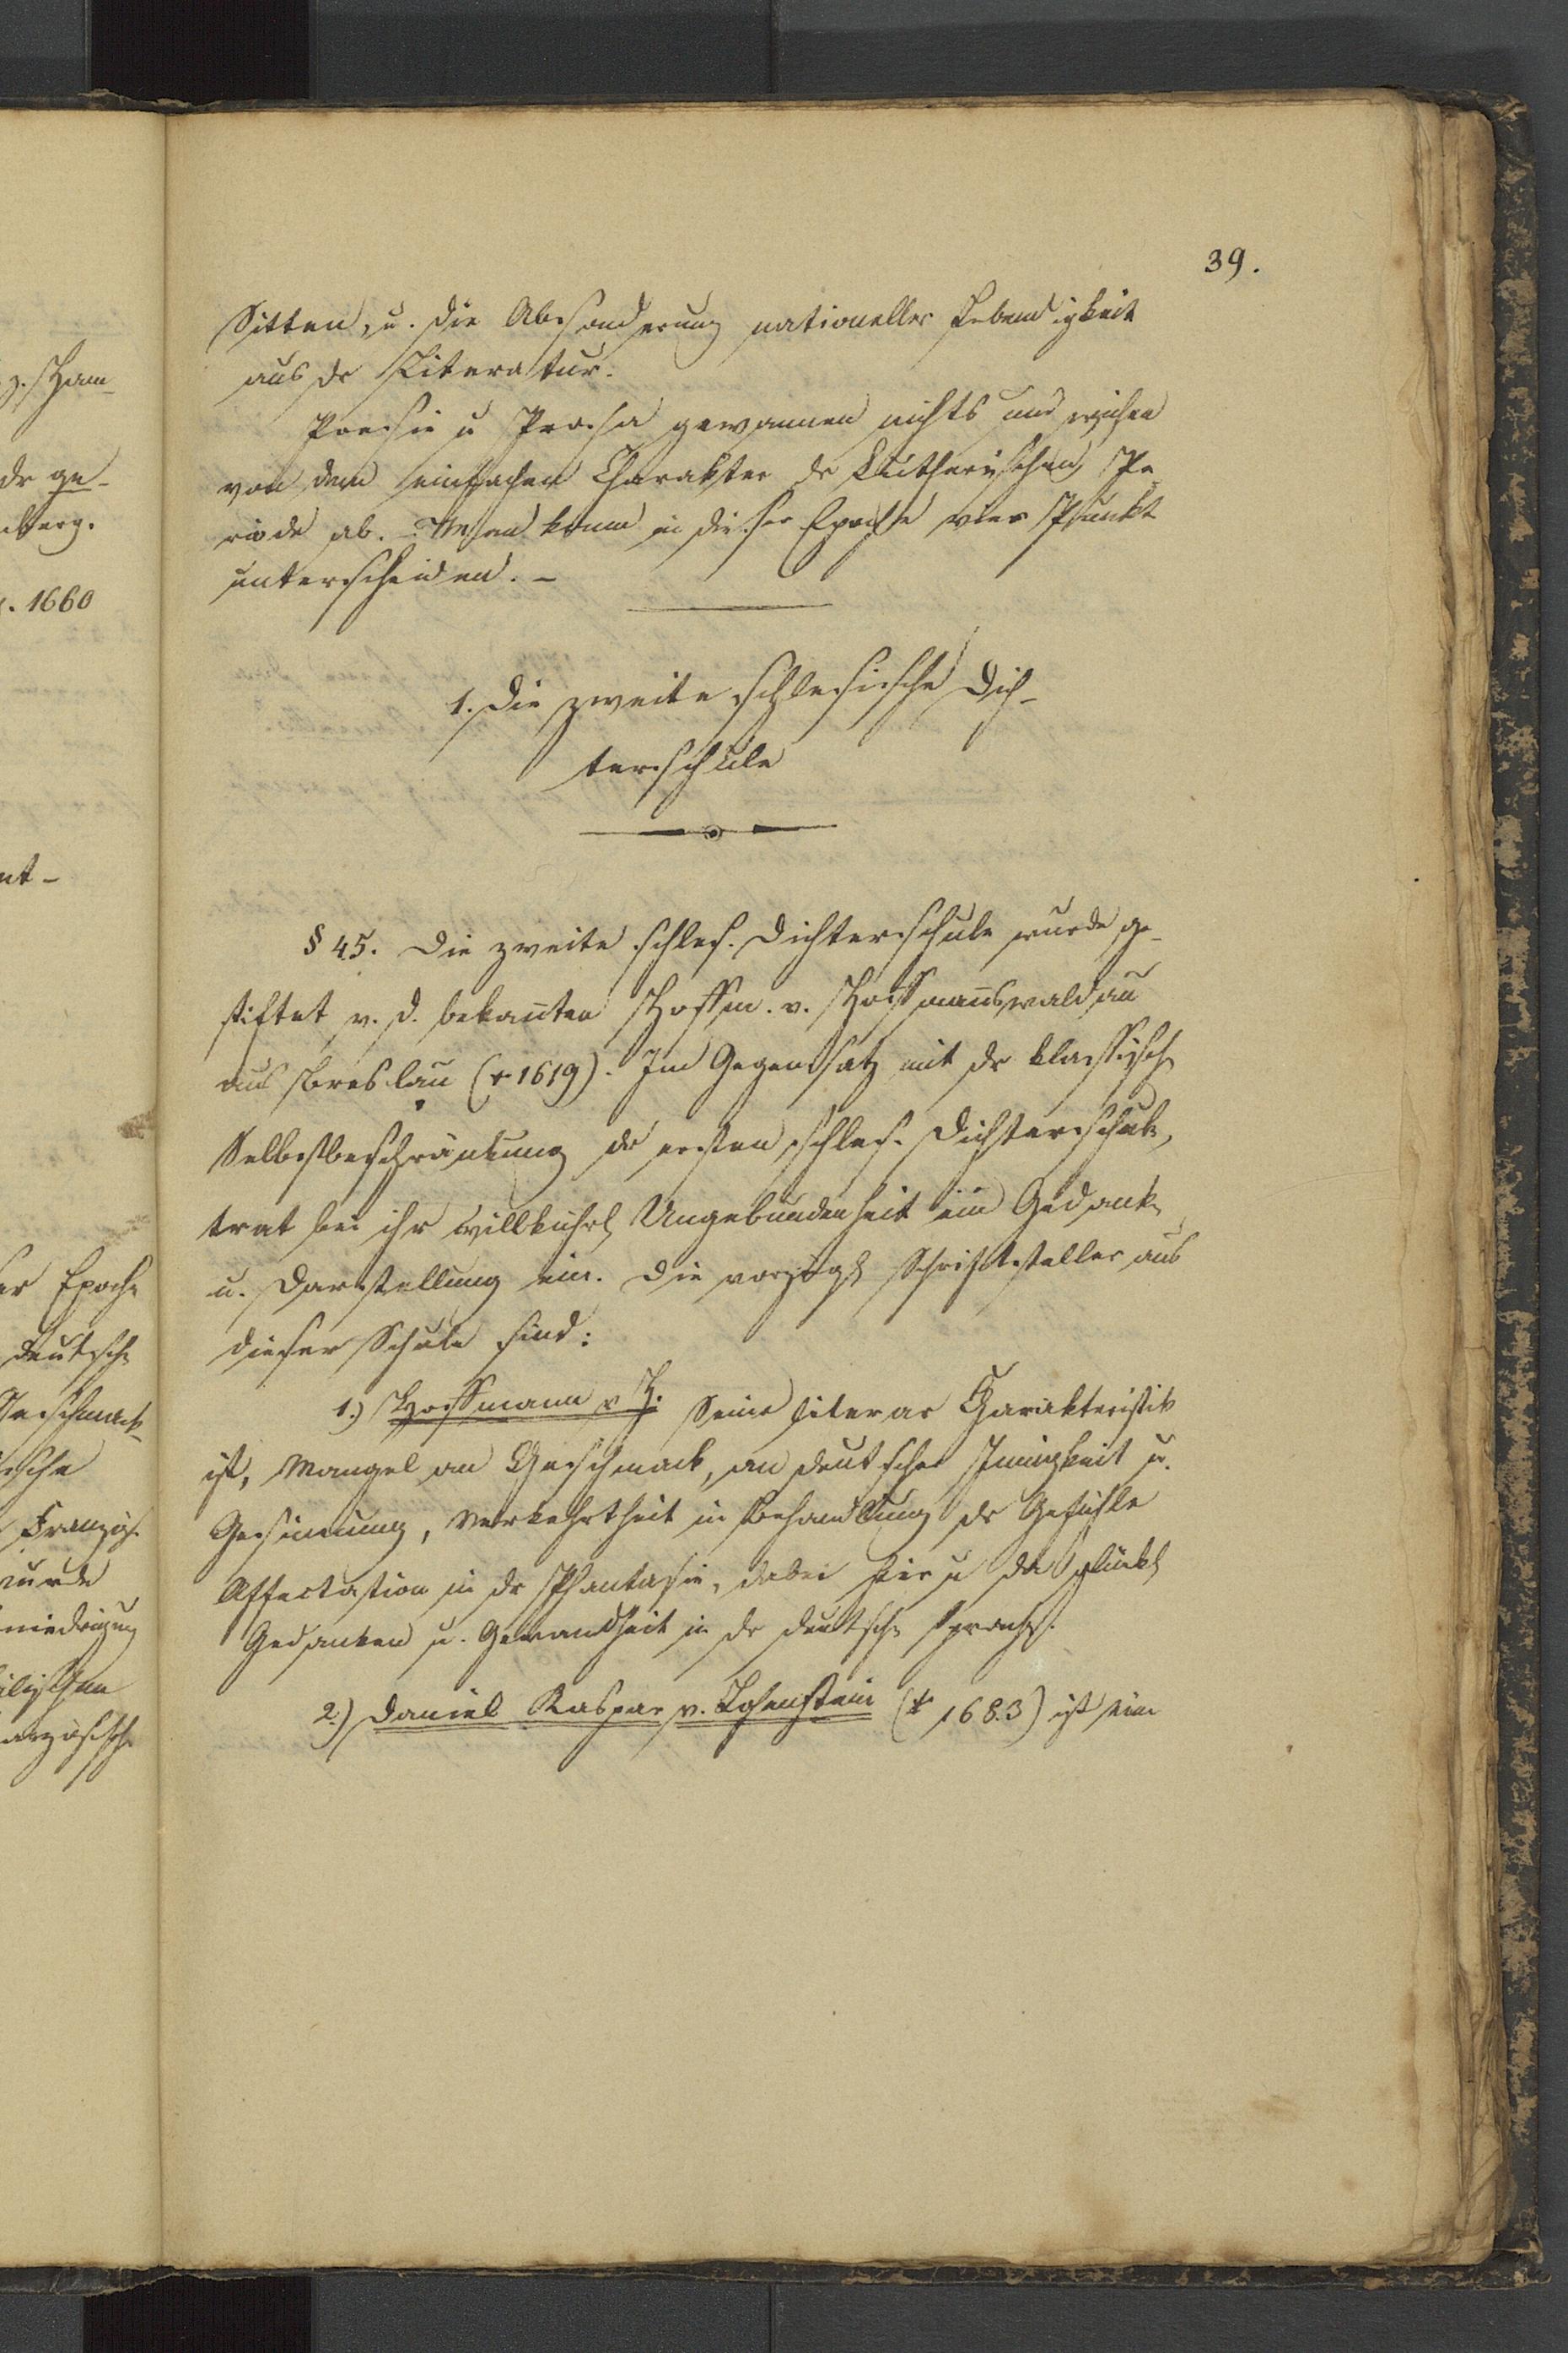 39.
Sitten, u. die Absonderung nationeller Lebendigkeit
aus dr Literatur.
Poesie u Prosa gewannen nichts und wichen
von dem einfachen Charakter dr Lutherischen Pe-
riode ab. – Man kann in dieser Epoche vier Punkte
unterscheiden. –
1. Die zweite schlesische Dich-
terschule
§ 45. Die zweite schles. Dichterschule wurde ge-
stiftet v. d. bekannten Hoffm. v. Hoffmannswaldau
aus Breslau (* 1619). Im Gegensatz mit dr klassisch
Selbstbeschränkung dr ersten schles. Dichterschule,
trat bei ihr willkührl Ungebundenheit in Gedank
u. Darstellung ein. Die vorzügl Schriftsteller aus
dieser Schule sind:
1.) Hoffmann v H. Seine literar Charakteristik
ist, Mangel an Geschmack, an deutscher Innigkeit u.
Gesinnung, Verkehrtheit in Behandlung dr Gefühle
Affectation in dr Phantasie, dabei hier u da glückl
Gedanken u. Gewandheit in dr deutsch Sprache.
2.) Daniel Kaspar v. Lohenstein (* 1683) ist ein
z. Ham-
dr ge-
berg.
1660
nt-
er Epoche
deutsch
Geschmack
ische
Französ.
wurde
niedrigung
anzösisch